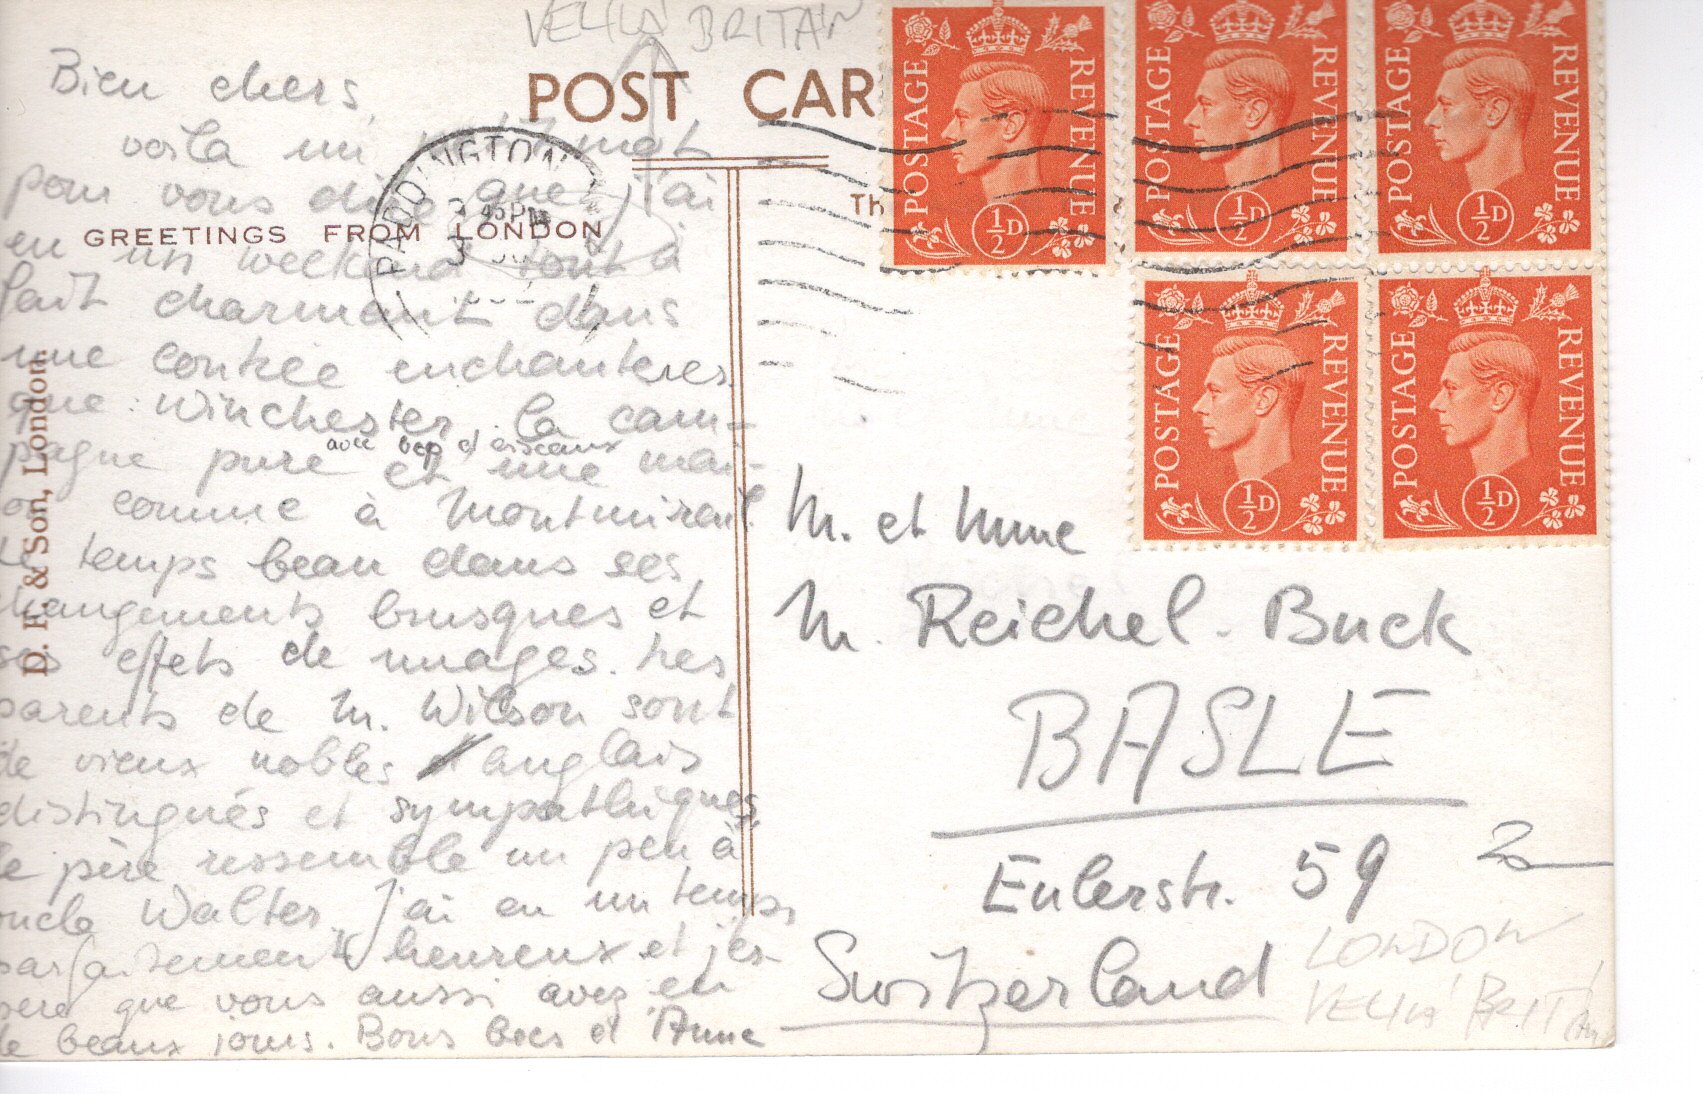 VELKÁ BRITÁN
POST CAR
GREETINGS FROM LONDON
D. F. & Son, London.
PADDINGTON
3 45 PM
Th
POSTAGE REVENUE ½D
POSTAGE REVENUE ½D
POSTAGE REVENUE ½D
POSTAGE REVENUE ½D
POSTAGE REVENUE ½D
Bien chers
voila un petit mot
pour vous dire que j'ai
eu un weekend tout à
fait charmant dans
une contrée enchanteres
que: Winchester. la cam-
pagne pure avec bcp d'oiseaux et une mai-
on comme à Montmirail
Le temps beau dans ses
changements brusques et
ses effets de nuages. Les
parents de M. Wilson sont
de vieux nobles anglais
distingués et sympathiques
le père ressemble un peu à
oncle Walter. J'ai eu un temps
parfaitement heureux et j'es-
père que vous aussi avez eu
de beaux jours. Bons becs d'Anne
M. et Mme
M. Reichel. Buck
BASLE
Eulerstr. 59
Switzerland
20
LONDON
VELKÁ BRIT